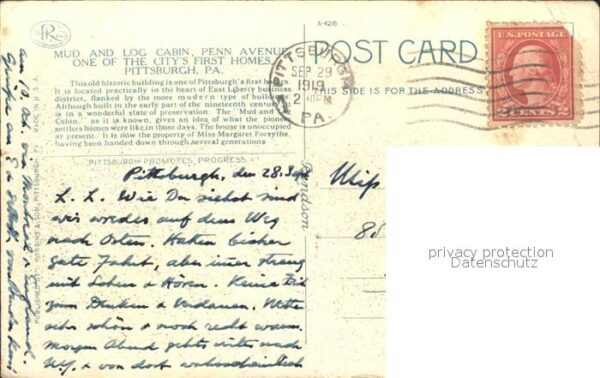 A-4216
MUD AND LOG CABIN, PENN AVENUE
ONE OF THE CITY'S FIRST HOMES
PITTSBURGH, PA.
This old historic building is one of Pittsburgh's first homes.
It is located practically in the heart of East Liberty business
district, flanked by the more modern type of building.
Although built in the early part of the nineteenth century
is in a wonderful state of preservation. The "Mud and
Cabin," as it is known, gives an idea of what the pioneer
settlers homes were like in those days. The house is unoccupied
at present. It is now the property of Miss Margaret Forsythe,
having been handed down through several generations
PITTSBURGH PROMOTES PROGRESS
POST CARD
THIS SIDE IS FOR THE ADDRESS
PITTSBURGH
SEP 29
2 PM
PA.
U.S. POSTAGE
CENTS
Pittsburgh, den 28. Sept
L. L. Wie Du siehst sind
wir wieder auf dem Weg
nach Osten. Haben bisher
gute Fahrt, aber immer streng
mit Sehen & Hören. Keine Zeit
zum Denken & Verdauen. Wetter
sehr schön & noch recht warm.
Morgen Abend gehts weiter nach
& von dort wahrscheinlich
am 10. Oct. via
Miss
85
privacy protection
Datenschutz
MADE IN U.S.A.
PITTSBURGH, PA.